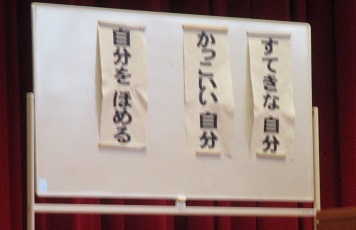 すてきな 自分
かっこいい 自分
自分を ほめる